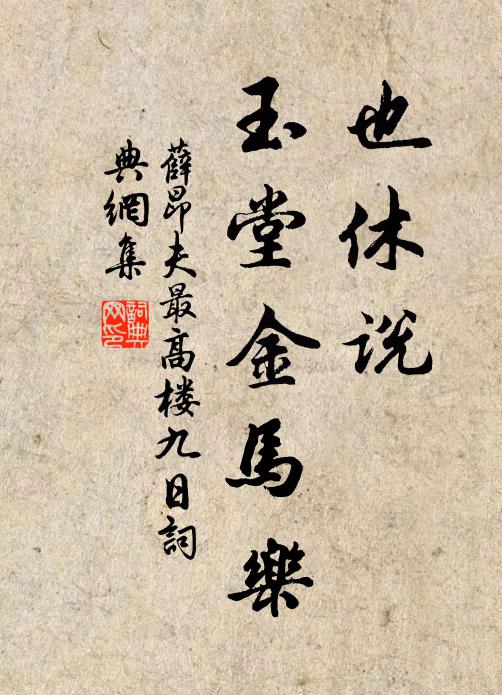 也休说
玉堂金馬樂
薛昂夫最高楼九日詞
典網集
詞典網印